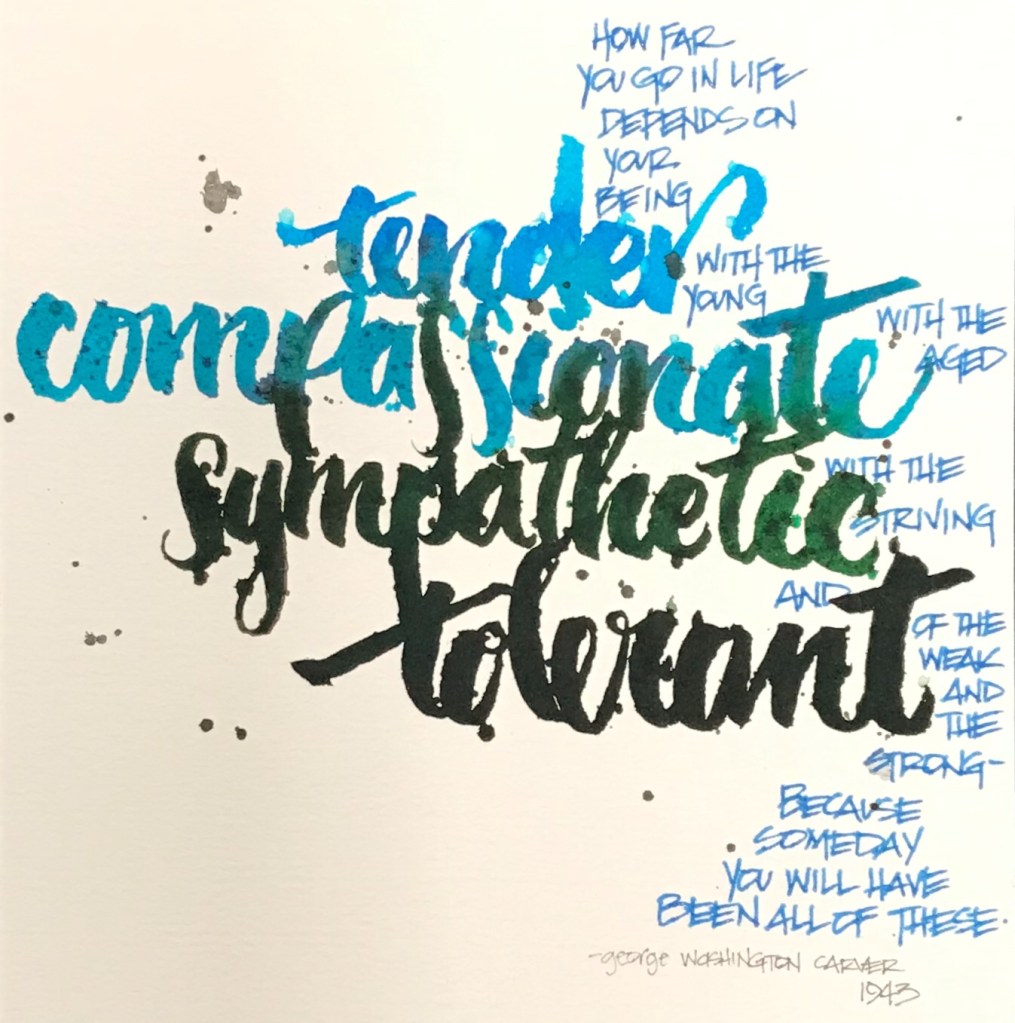 HOW FAR
YOU GO IN LIFE
DEPENDS ON
YOUR
BEING
tender
WITH THE
YOUNG
compassionate
WITH THE
AGED
sympathetic
WITH THE
STRIVING
AND
tolerant
OF THE
WEAK
AND
THE
STRONG-
BECAUSE
SOMEDAY
YOU WILL HAVE
BEEN ALL OF THESE.
-george WASHINGTON CARVER
1943